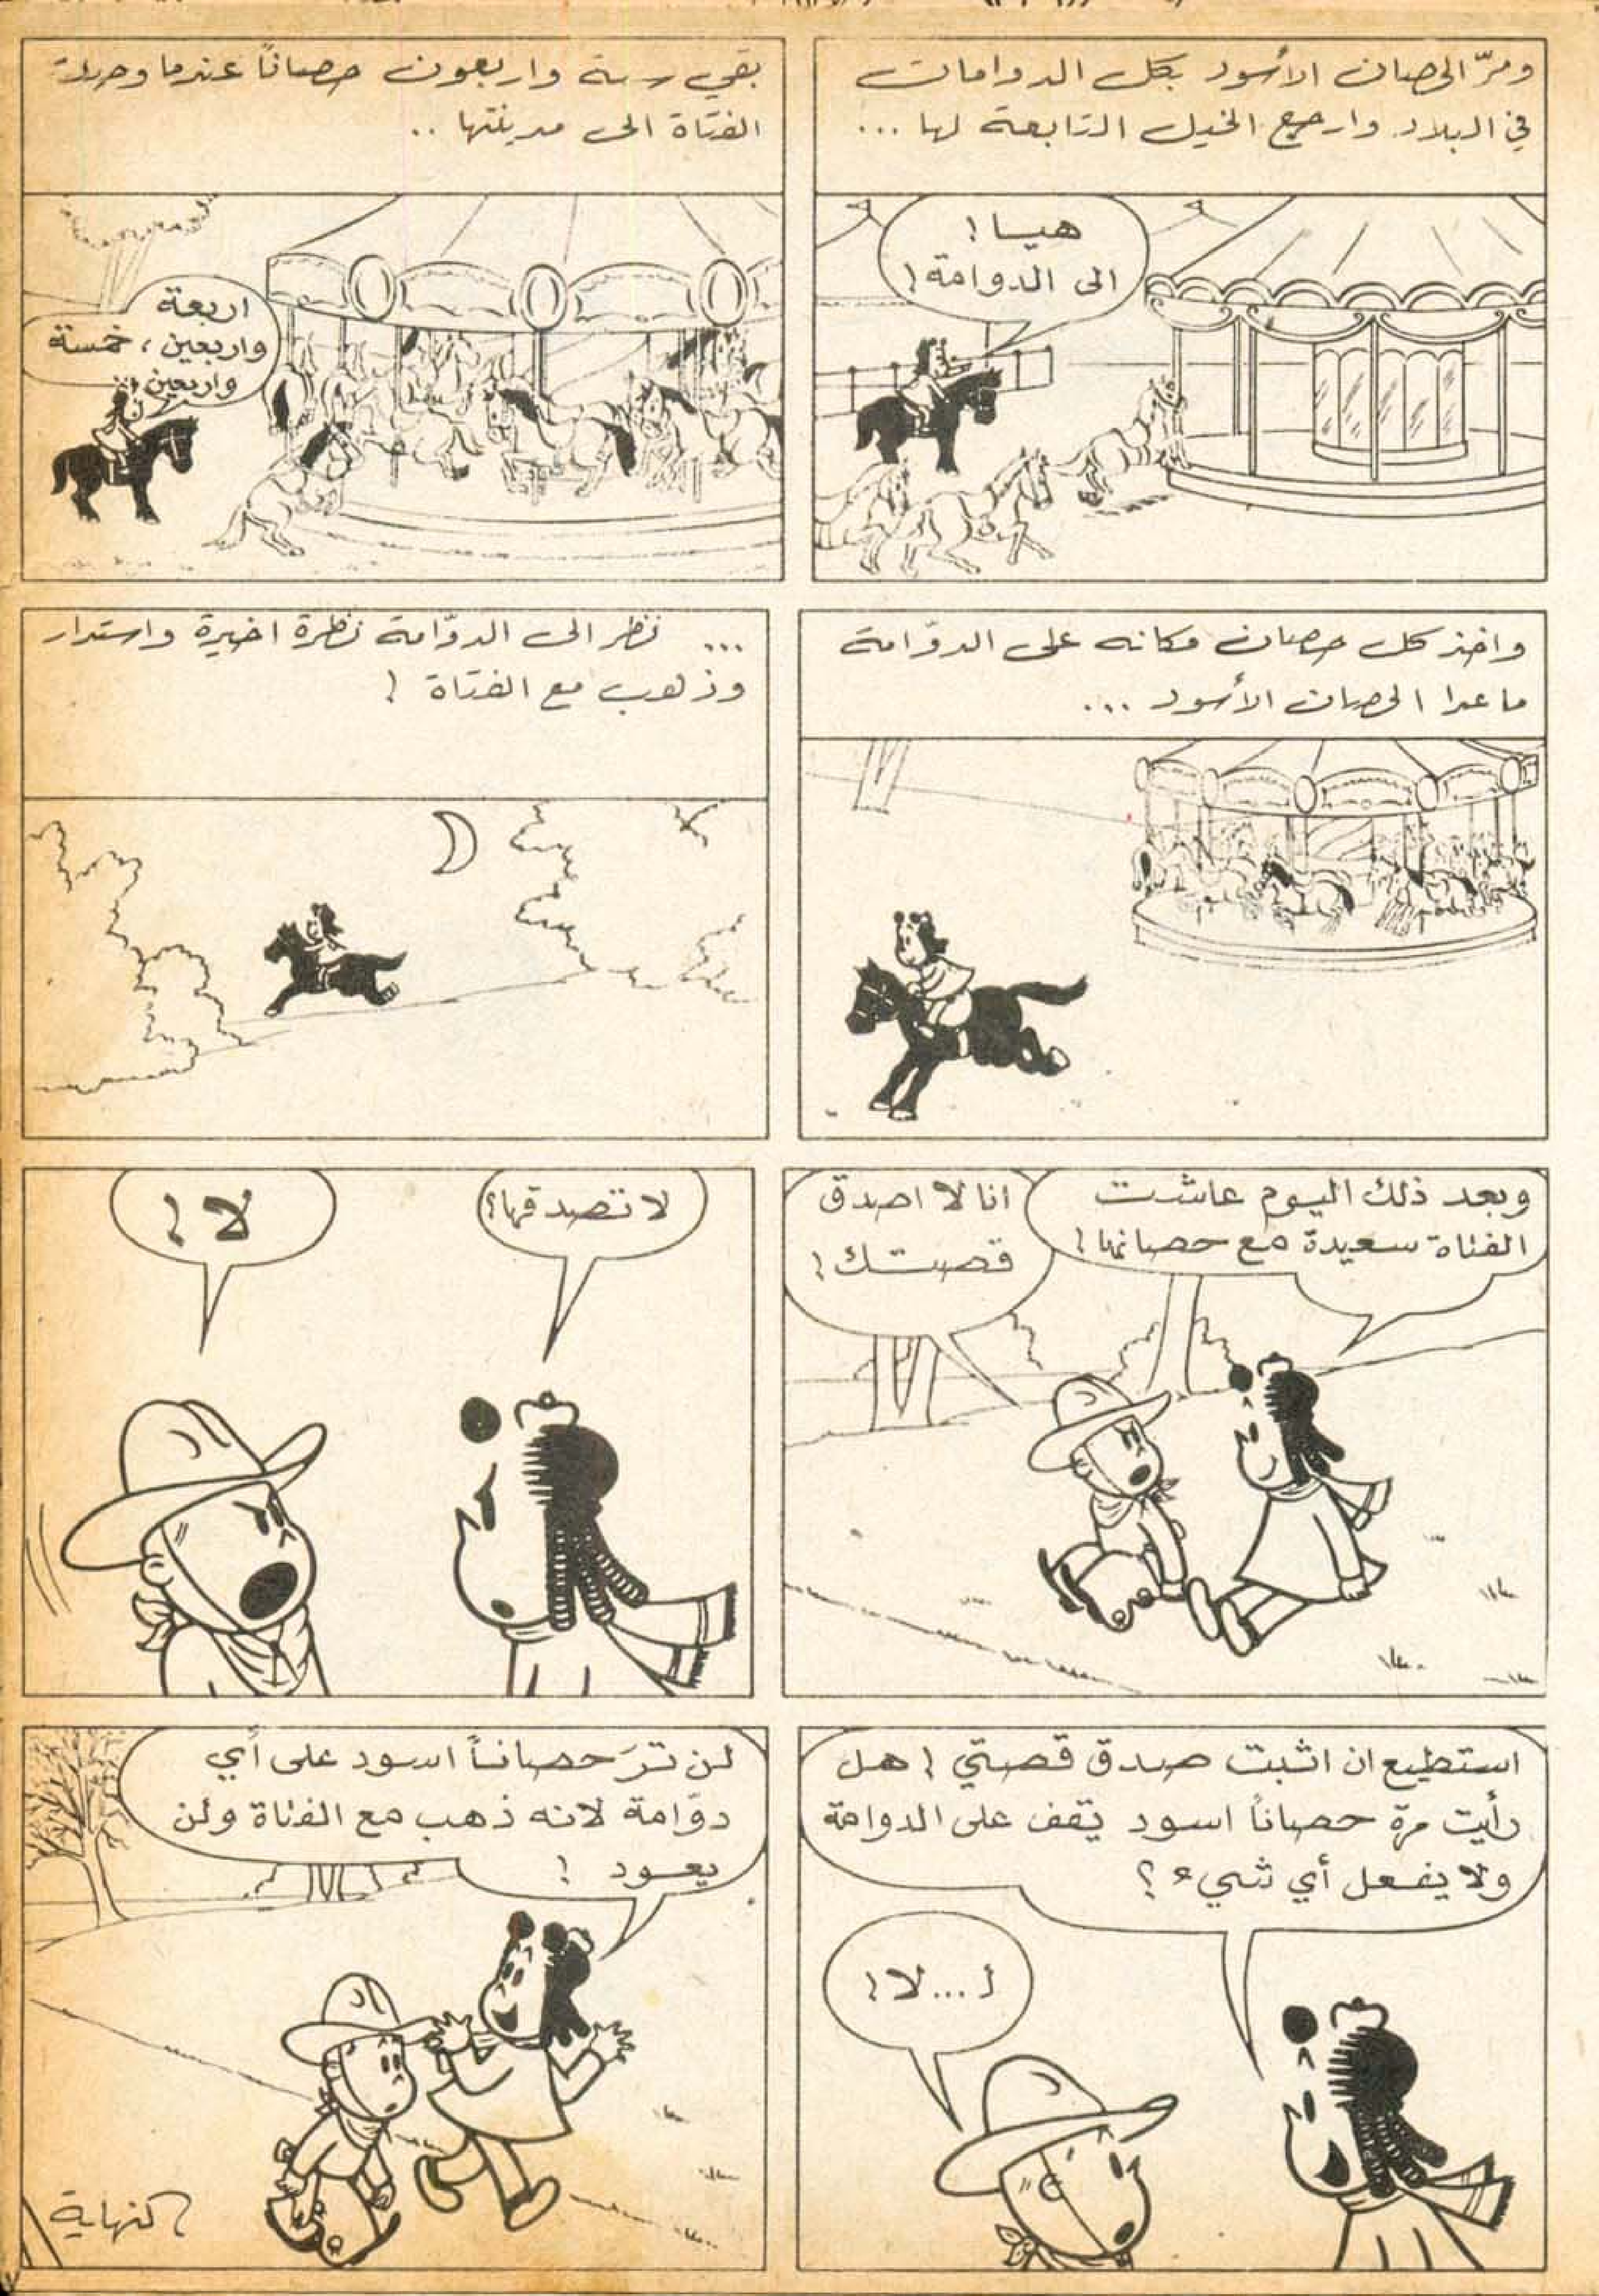 ومرّ الحصان الأسود بكل الدوامات
في البلاد وارجع الخيل التابعة لها ...
هيا!
الى الدوامة!
بقي ستة واربعون حصاناً عندما وصلت
الفتاة الى مدينتها ..
اربعة
واربعين، خمسة
واربعين..
واخذ كل حصان مكانه على الدوّامة
ما عدا الحصان الأسود ...
... نظر الى الدوّامة نظرة اخيرة واستدار
وذهب مع الفتاة !
وبعد ذلك اليوم عاشت
الفتاة سعيدة مع حصانها!
انا لا اصدق
قصتك!
لا تصدقها؟
لا!
استطيع ان اثبت صدق قصتي ! هل
رأيت مرة حصاناً اسود يقف على الدوامة
ولا يفعل أي شيء؟
أ...لا!
لن ترَ حصاناً اسود على أي
دوّامة لانه ذهب مع الفتاة ولن
يعود !
النهاية